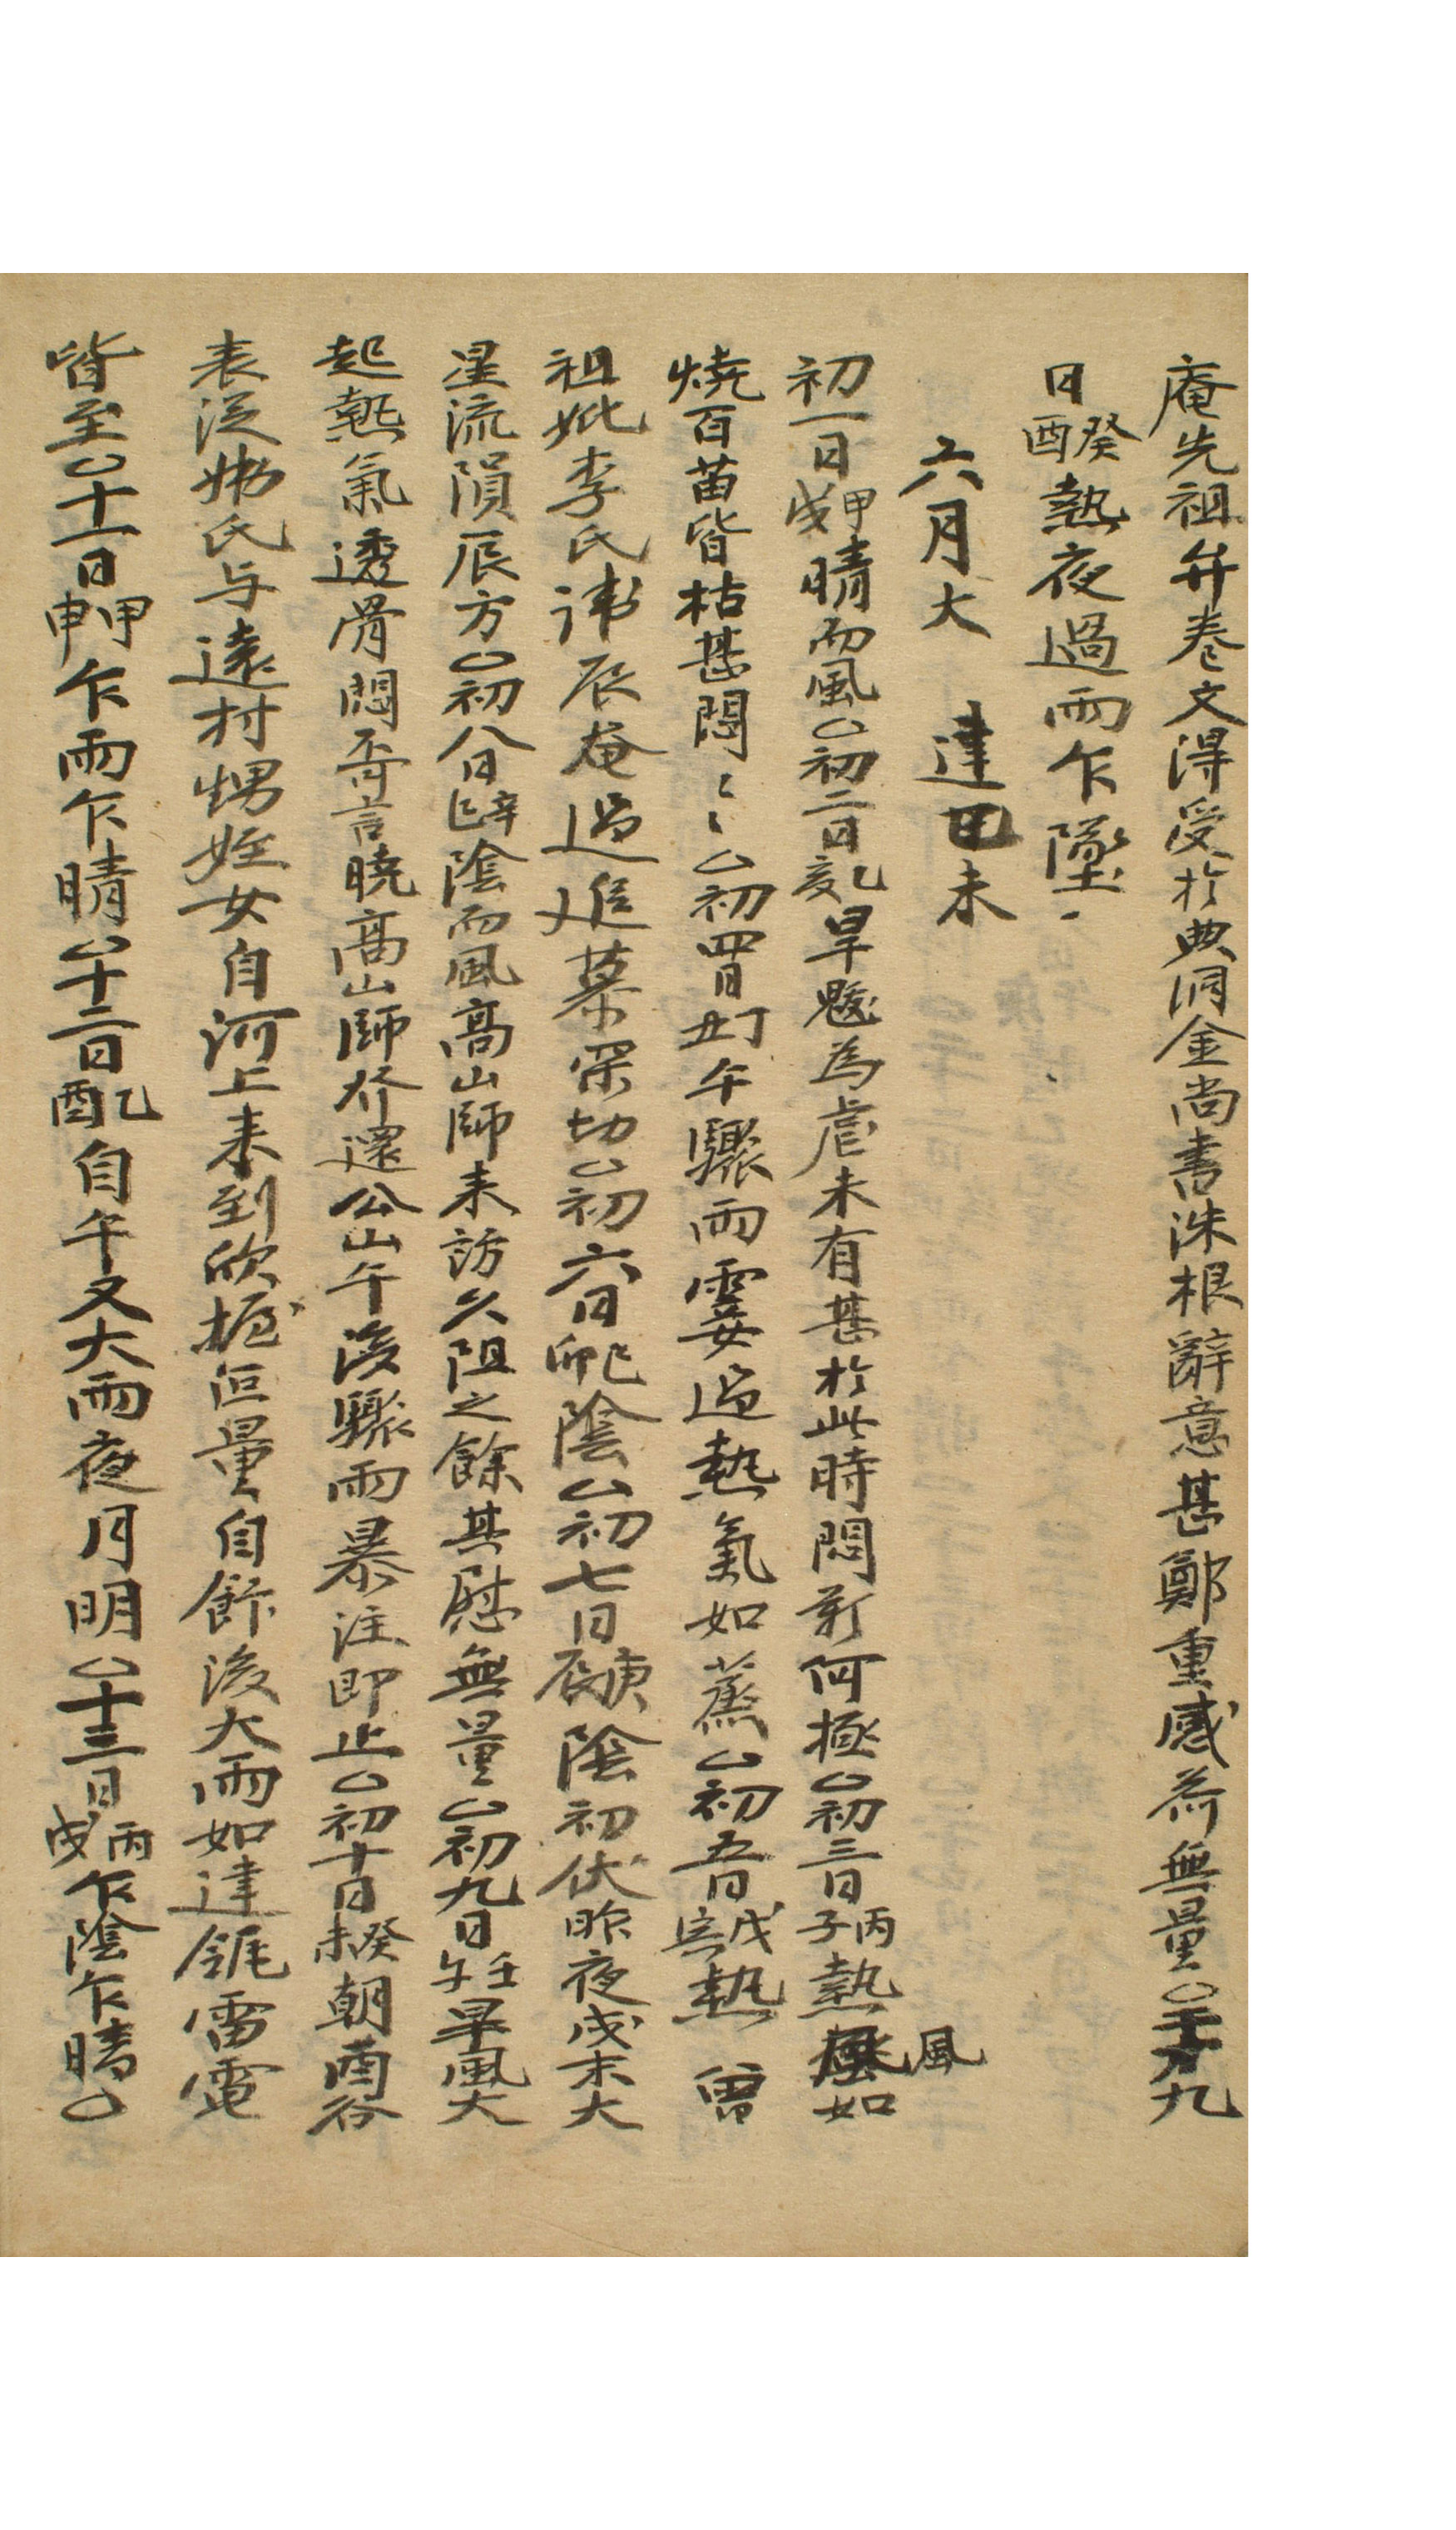 庵先祖弁巻文得受於典洞金尚書洙根辭意甚鄭重感荷無量○二十九
日癸酉熱夜過雨乍墜
六月大 建己未
初一日甲戌晴而風○初二日乙亥旱魃為虐未有甚於此時悶
何極○初三日丙子熱風如
燒百苗皆枯甚悶〻〻○初四日丁丑午驟雨霎過熱氣如蒸○初五日戊寅熱 曾
祖妣李氏諱辰奄過追慕深切○初六日己卯陰○初七日庚辰陰初伏昨夜戌末大
星流隕辰方○初八日辛巳陰而風高山師来訪久阻之餘其慰無量○初九日壬午旱風大
起熱氣透骨悶不可言曉高山師作還公山午後驟雨暴注即止○初十日癸未朝酉谷
表從娣氏与遠村甥姪女自河上来到欣握叵量自餔後大雨如建瓴雷電
皆至○十一日甲申乍雨乍晴○十二日乙酉自午又大雨夜月明○十三日丙戌乍陰乍晴○